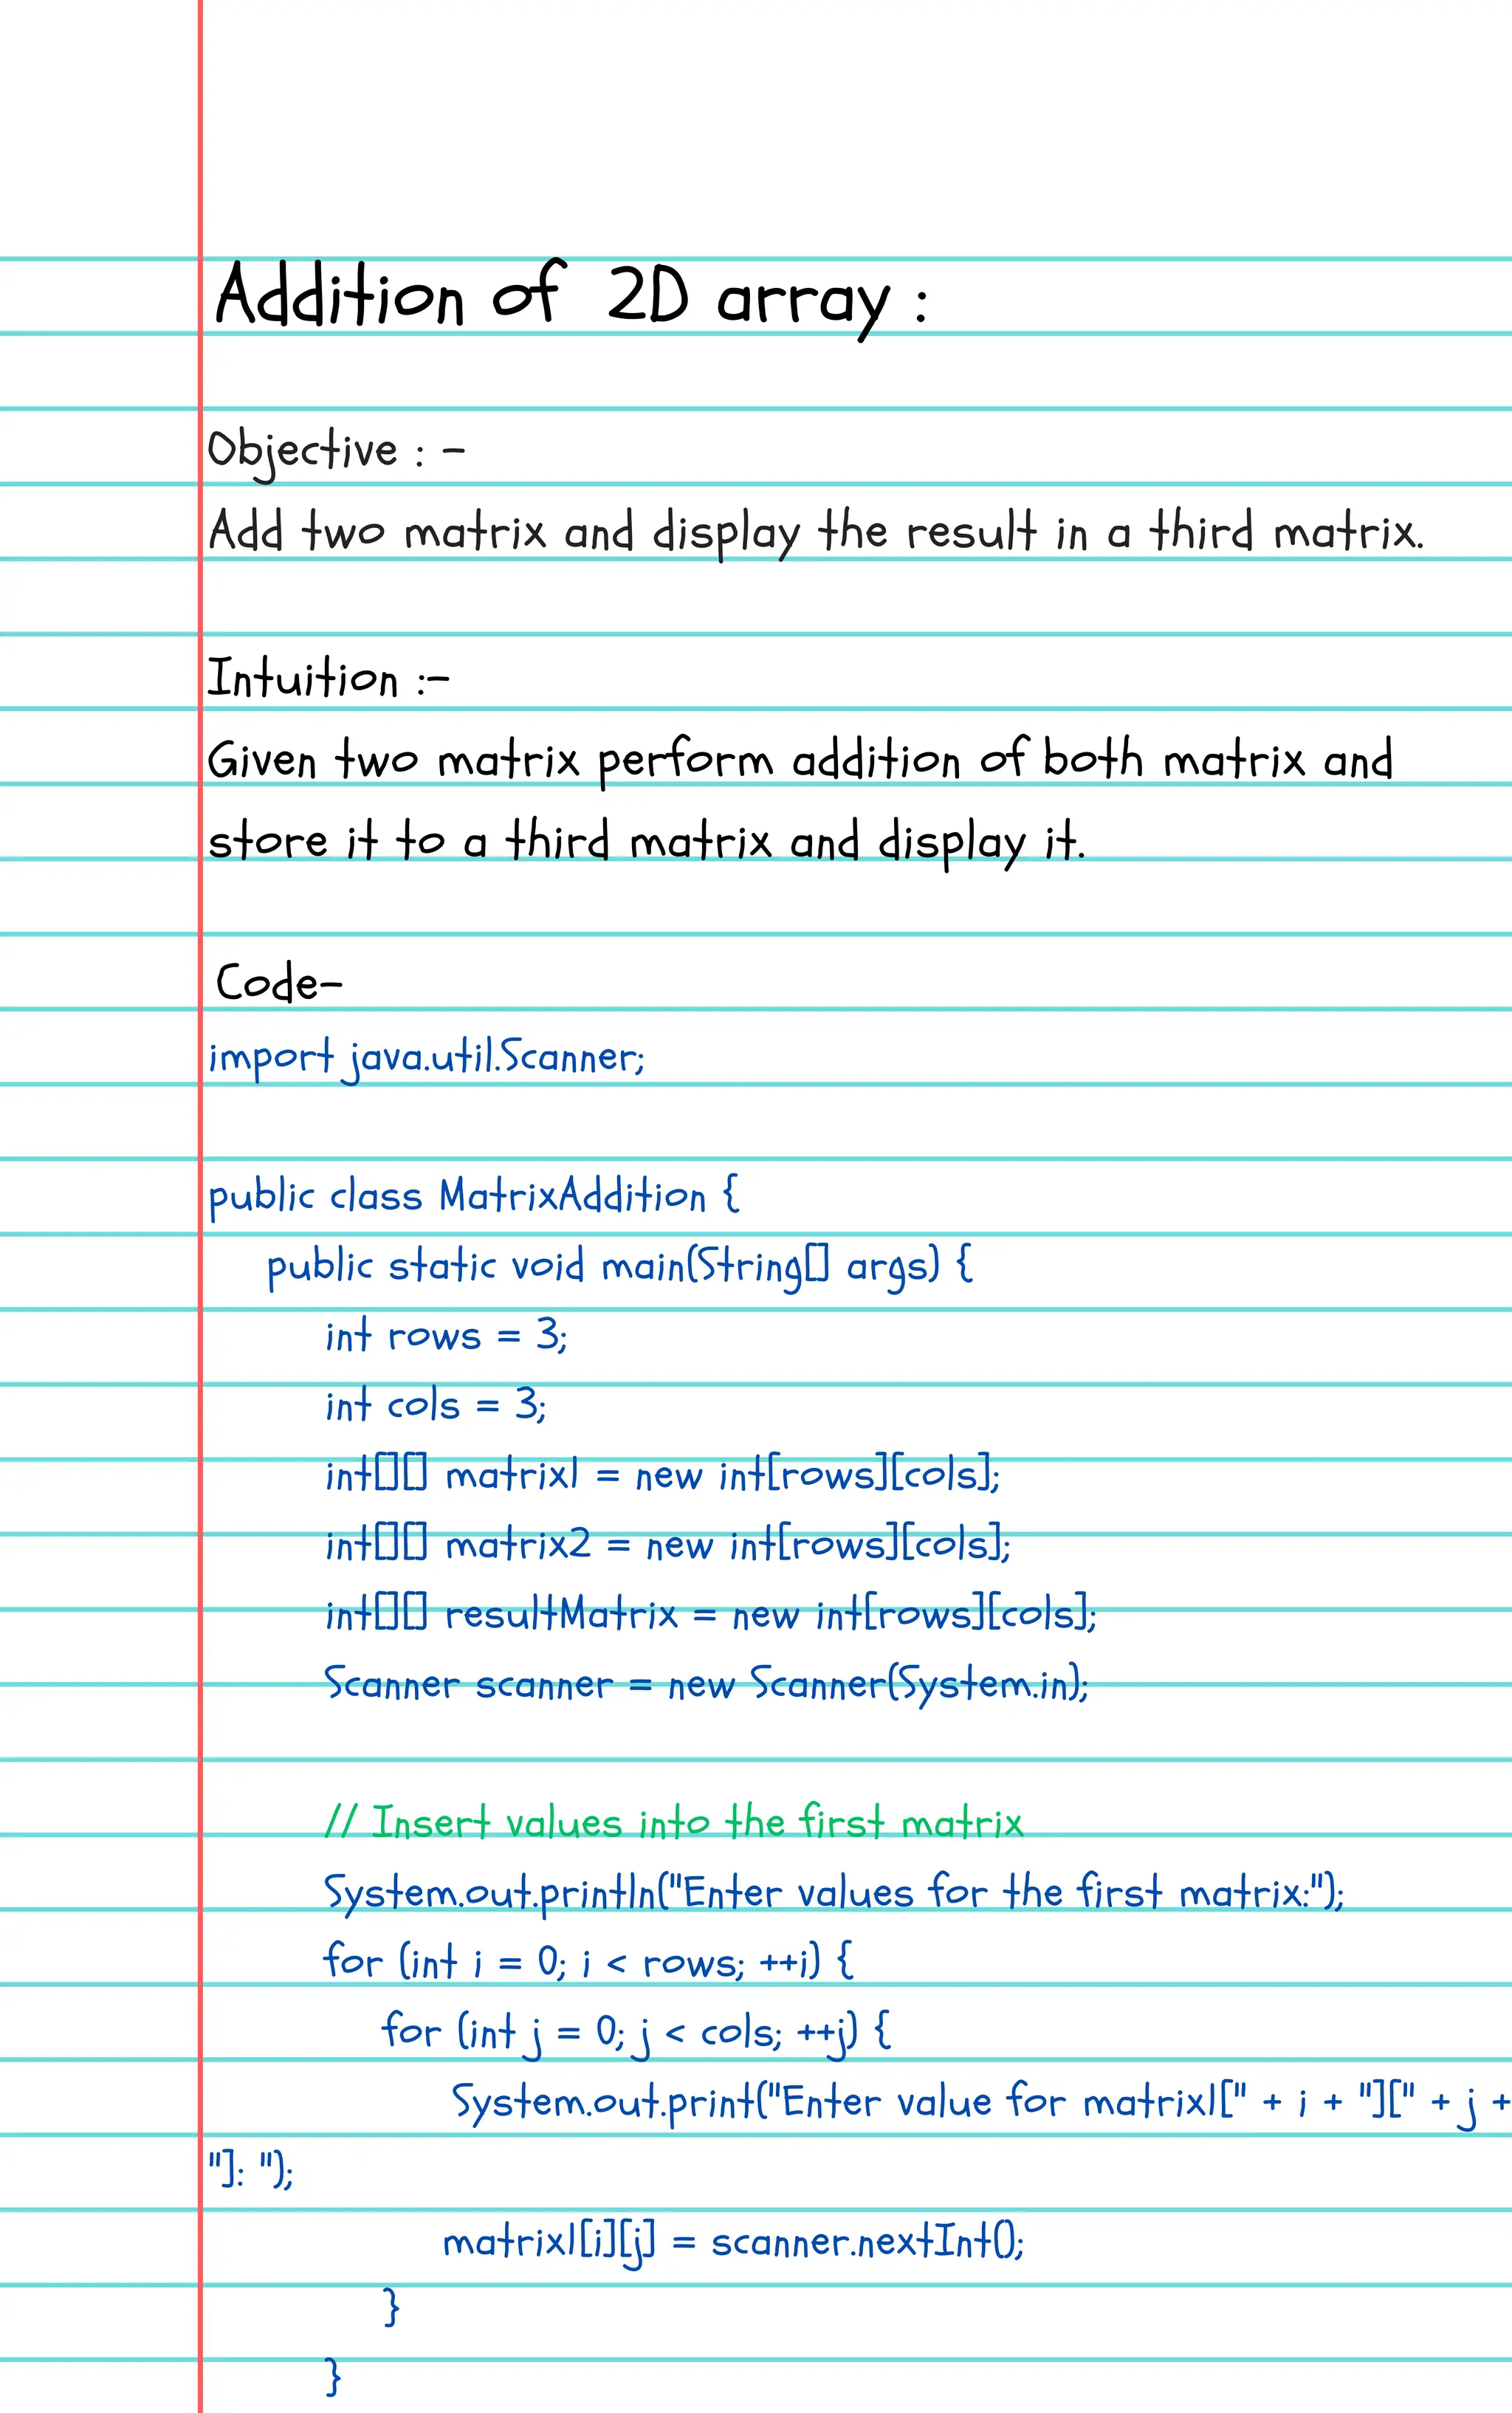 Addition of 2D array :
Objective : -
Add two matrix and display the result in a third matrix.
Intuition :-
Given two matrix perform addition of both matrix and
store it to a third matrix and display it.
Code-
import java.util.Scanner;
public class MatrixAddition {
public static void main(String[] args) {
int rows = 3;
int cols = 3;
int[][] matrix1 = new int[rows][cols];
int[][] matrix2 = new int[rows][cols];
int[][] resultMatrix = new int[rows][cols];
Scanner scanner = new Scanner(System.in);
// Insert values into the first matrix
System.out.println("Enter values for the first matrix:");
for (int i = 0; i < rows; ++i) {
for (int j = 0; j < cols; ++j) {
System.out.print("Enter value for matrix1[" + i + "][" + j +
"]: ");
matrix1[i][j] = scanner.nextInt();
}
}